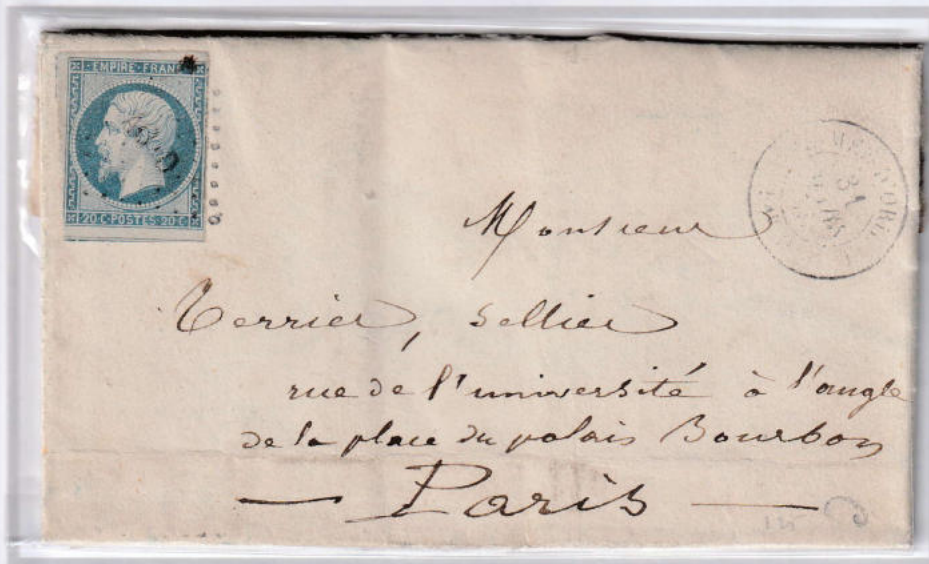 EMPIRE FRAN
20 C POSTES 20 C
31
Monsieur
Terrier, sellier
rue de l'université à l'angle
de la place du palais Bourbon
Paris